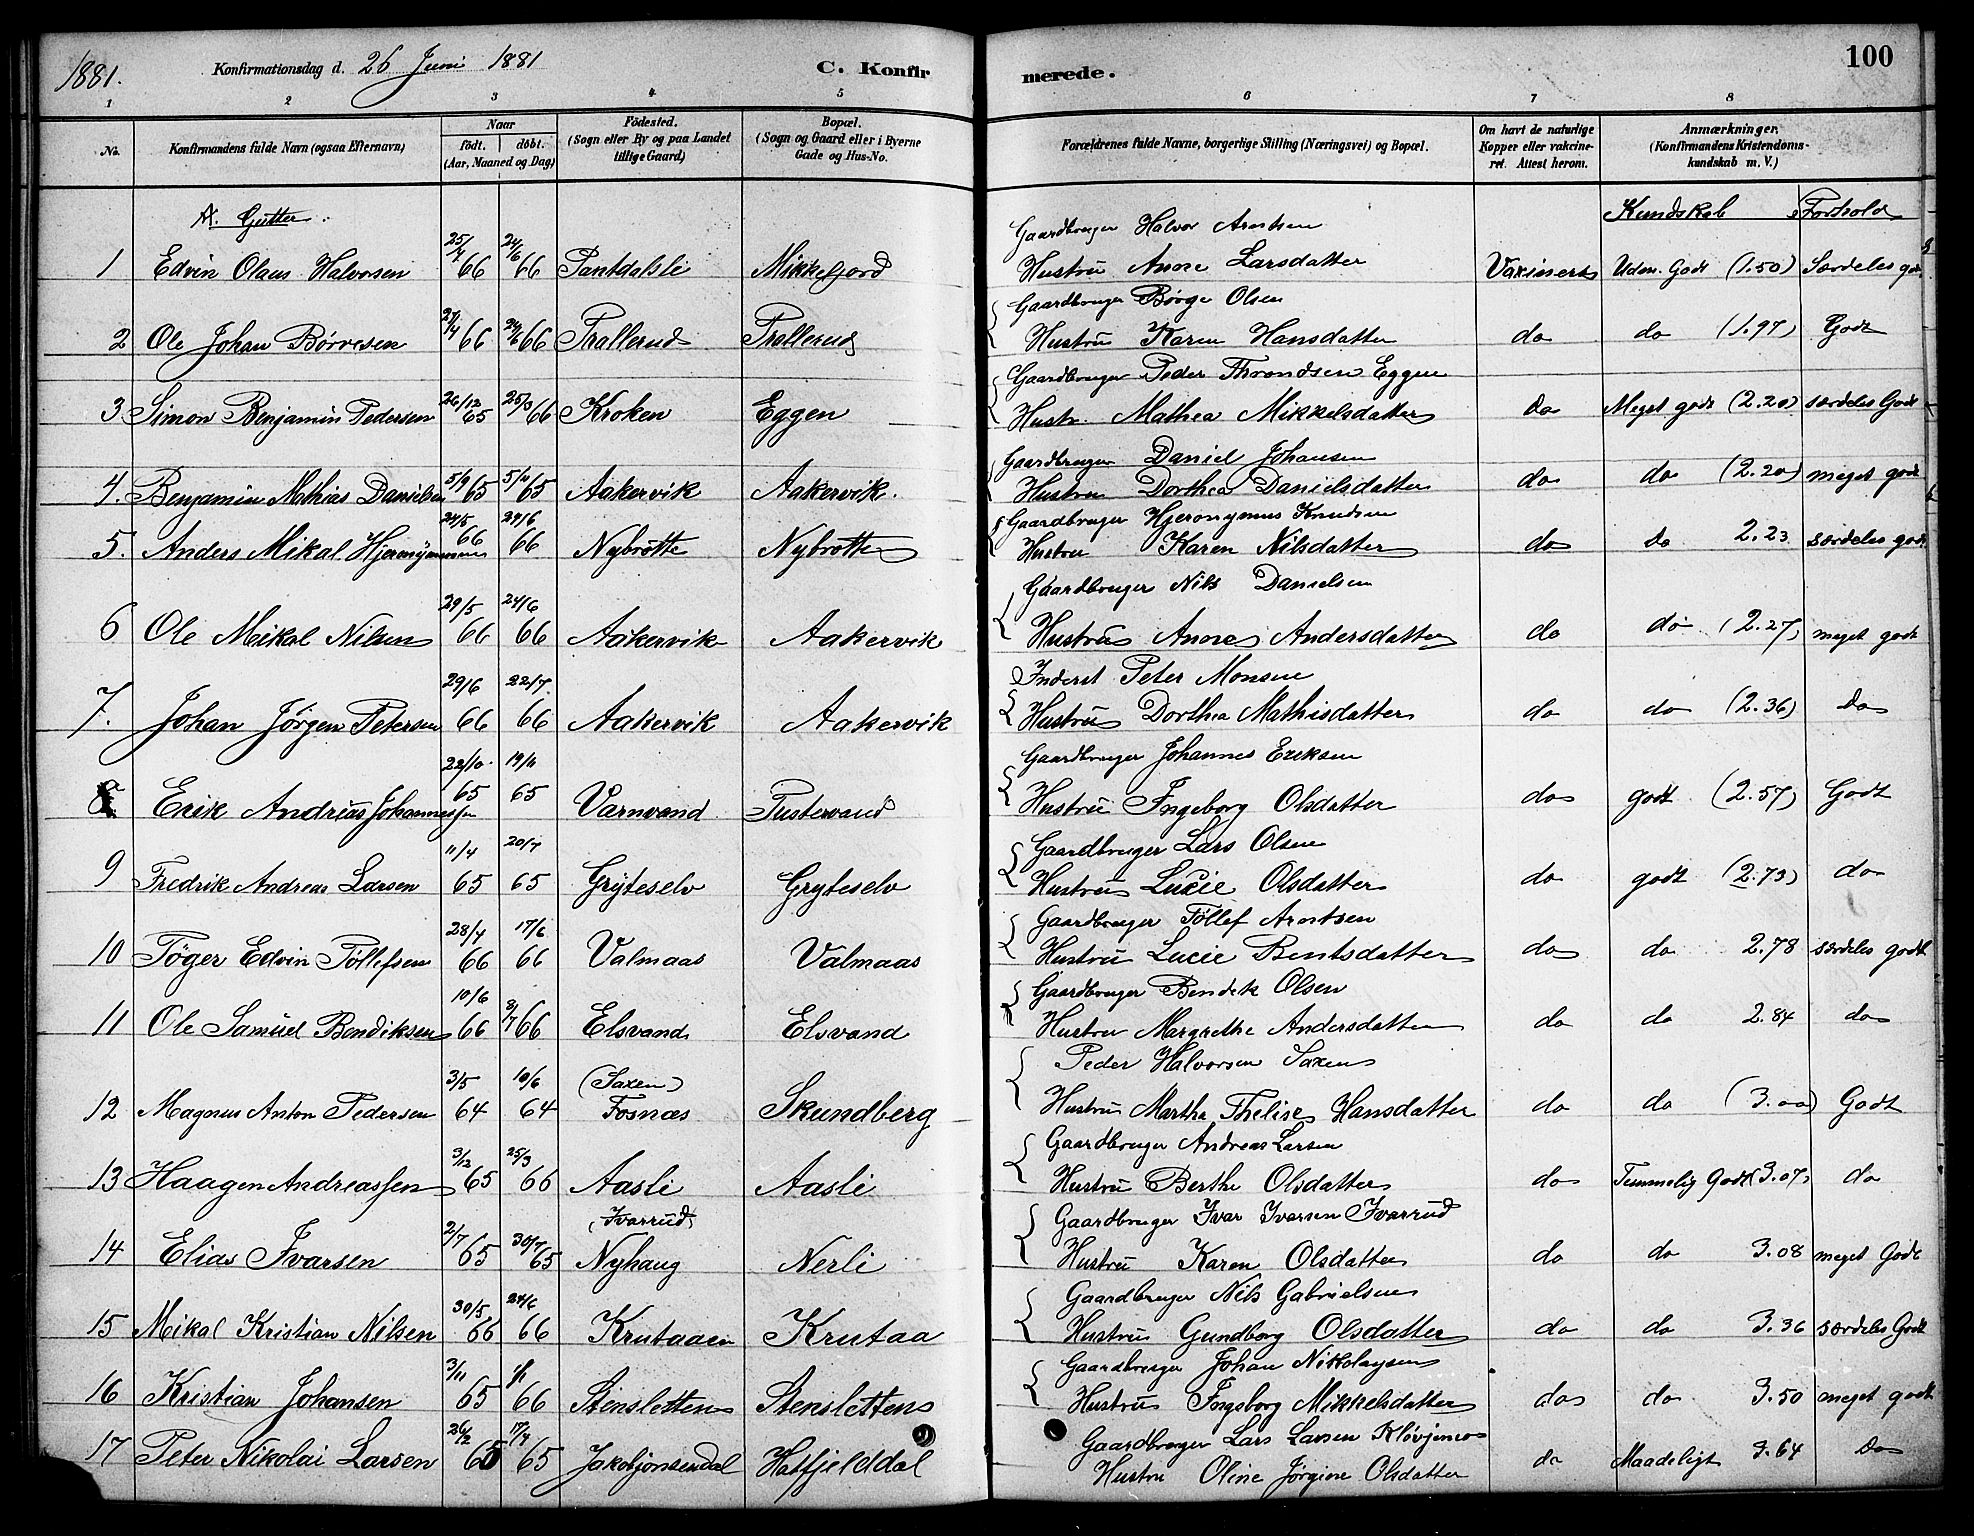 1881.
Konfirmationsdag d. 26 Juni 1881
C. Konfirmerede.
100
1 2 3 4 5 6 7 8
No. | Konfirmandens fulde Navn (ogsaa Efternavn) | Naar födt. döbt. (Aar, Maaned og Dag) | Födested. (Sogn eller By og paa Landet tillige Gaard) | Bopæl. (Sogn og Gaard eller i Byerne Gade og Hus-No. | Forældrenes fulde Navne, borgerlige Stilling (Næringsvei) og Bopæl. | Om havt de naturlige Kopper eller vakcineret. Attest herom. | Anmærkninger. (Konfirmandens Kristendomskundskab m. V.)
A. Gutter. | Kundskab | Forhold
Gaardbruger Halvor Arntsen
1 Edvin Olaus Halvorsen 66 24/6 66 Pantdalsli Mikkelfjord Hustru Anne Larsdatter Vaxineret Udm. Godt (1.50) Særdeles godt
Gaardbruger Børge Olsen
2 Ole Johan Børresen 27/4 66 24/6 66 Trallerud Trallerud Hustru Karen Hansdatter do do (1.97) Godt
Gaardbruger Peder Throndsen Eggen
3 Simon Benjamin Pedersen 26/12 65 25/3 66 Kroken Eggen Hustr. Mathea Mikkelsdatter do Meget godt (2.20) særdeles Godt
Gaardbruger Daniel Johansen
4. Benjamin Mathias Danielsen 5/9 65 5/11 65 Aakervik Aakervik. Hustru Dorthea Danielsdatter do do (2.20) meget godt
Gaardbruger Hjeronymus Knudsen
5. Anders Mikal Hjeronymussen 24/5 66 24/6 66 Nybrotte Nybrotte Hustru Karen Nilsdatter do do 2.23 særdeles godt
Gaardbruger Nils Danielsen
6 Ole Mikal Nilsen 29/5 66 24/6 66 Aakervik Aakervik Hustru Anne Andersdatter do do (2.27) meget godt
Inderst Peter Monsen
7. Johan Jørgen Petersen 29/6 66 22/7. 66 Aakervik Aakervik Hustru Dorthea Mathisdatter do do (2.36) do
Gaardbruger Johannes Eriksen
8 Erik Andrias Johannessen 22/10. 65 19/11 65 Varnvand Tustervand Hustru Ingeborg Olsdatter do godt (2.57) Godt
Gaardbruger Lars Olsen
9 Fredrik Andreas Larsen 11/4 65 20/7 65 Gryteselv Gryteselv Hustru Lucie Olsdatter do godt (2.73) do
Gaardbruger Töllef Arntsen
10 Töger Edvin Töllefsen 28/4 66 17/6 66 Valmaas Valmaas Hustru Lucie Bentsdatter do do 2.78 særdeles godt
Gaardbruger Bendik Olsen
11 Ole Samuel Bendiksen 10/6 66 8/7 66 Elsvand Elsvand Hustru Margrethe Andersdatter do do 2.84 do
Peder Halvorsen Saxen
12 Magnus Anton Pedersen 3/5 64 10/6 64 (Saxen) Fosnæs Skundberg Hustru Martha Thelise Hansdatter do do (3.00) Godt
Gaardbruger Andreas Larsen
13 Haagen Andreassen 3/12 65 25/3 66 Aasli Aasli Hustru Berthe Olsdatter do Temmelig Godt (3.07) do
Gaardbruger Ivar Ivarsen Ivarrud
14 Elias Ivarsen 2/7 65 30/7 65 (Ivarrud) Nyhaug Nerli Hustru Karen Olsdatter do do 3.08 meget Godt
Gaardbruger Nils Gabrielsen
15 Mikal Kristian Nilsen 30/5 66 24/6 66 Krutaaen Krutaa Hustru Gundborg Olsdatter do do 3.36 særdeles Godt
Gaardbruger Johan Nikolaysen
16 Kristian Johansen 3/11 65 1/1 66 Stensletten Stensletten Hustru Ingeborg Mikkelsdatter do do 3.50 meget godt
Gaardbruger Lars Larsen Kløvjemo
17 Peter Nikolai Larsen 26/2 65 17/4 65 Jakobjonsendal Hatfjelddal Hustru Oline Jørgine Olsdatter do Maadeligt 3.64 do